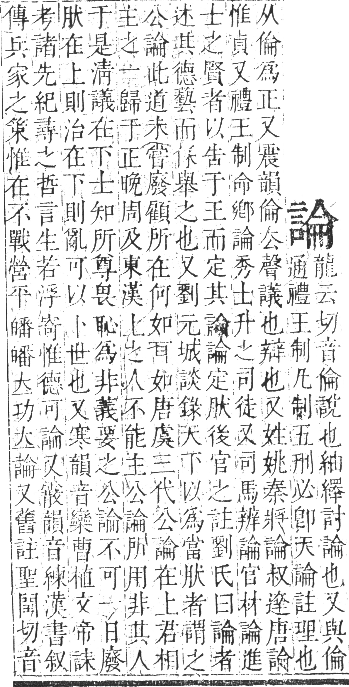 論
龍云切音倫說也紬繹討論也又與倫
通禮王制凡制五刑必卽天論註理也
从倫爲正又震韻倫厺聲議也辯也又姓姚秦將論叔遼唐論
惟貞又禮王制命鄕論秀士升之司徒又司馬辨論官材論進
士之賢者以告于王而定其論論定肰後官之註劉氏曰論者
述其德藝而保舉之也又劉元城談錄天下以爲當肰者謂之
公論此道未嘗廢顧所在何如耳如唐虞三代公論在上君相
主之一歸于正晚周及東漢上之人不能主公論所用非其人
于是淸議在下士知所尊畏恥爲非義要之公論不可一日廢
肰在上則治在下則亂可以卜世也又寒韻音欒曹植文帝誄
考諸先紀尋之哲言生若浮寄惟德可論又霰韻音練漢書叙
傳兵家之策惟在不戰營平皤皤立功立論又舊註聖閏切音